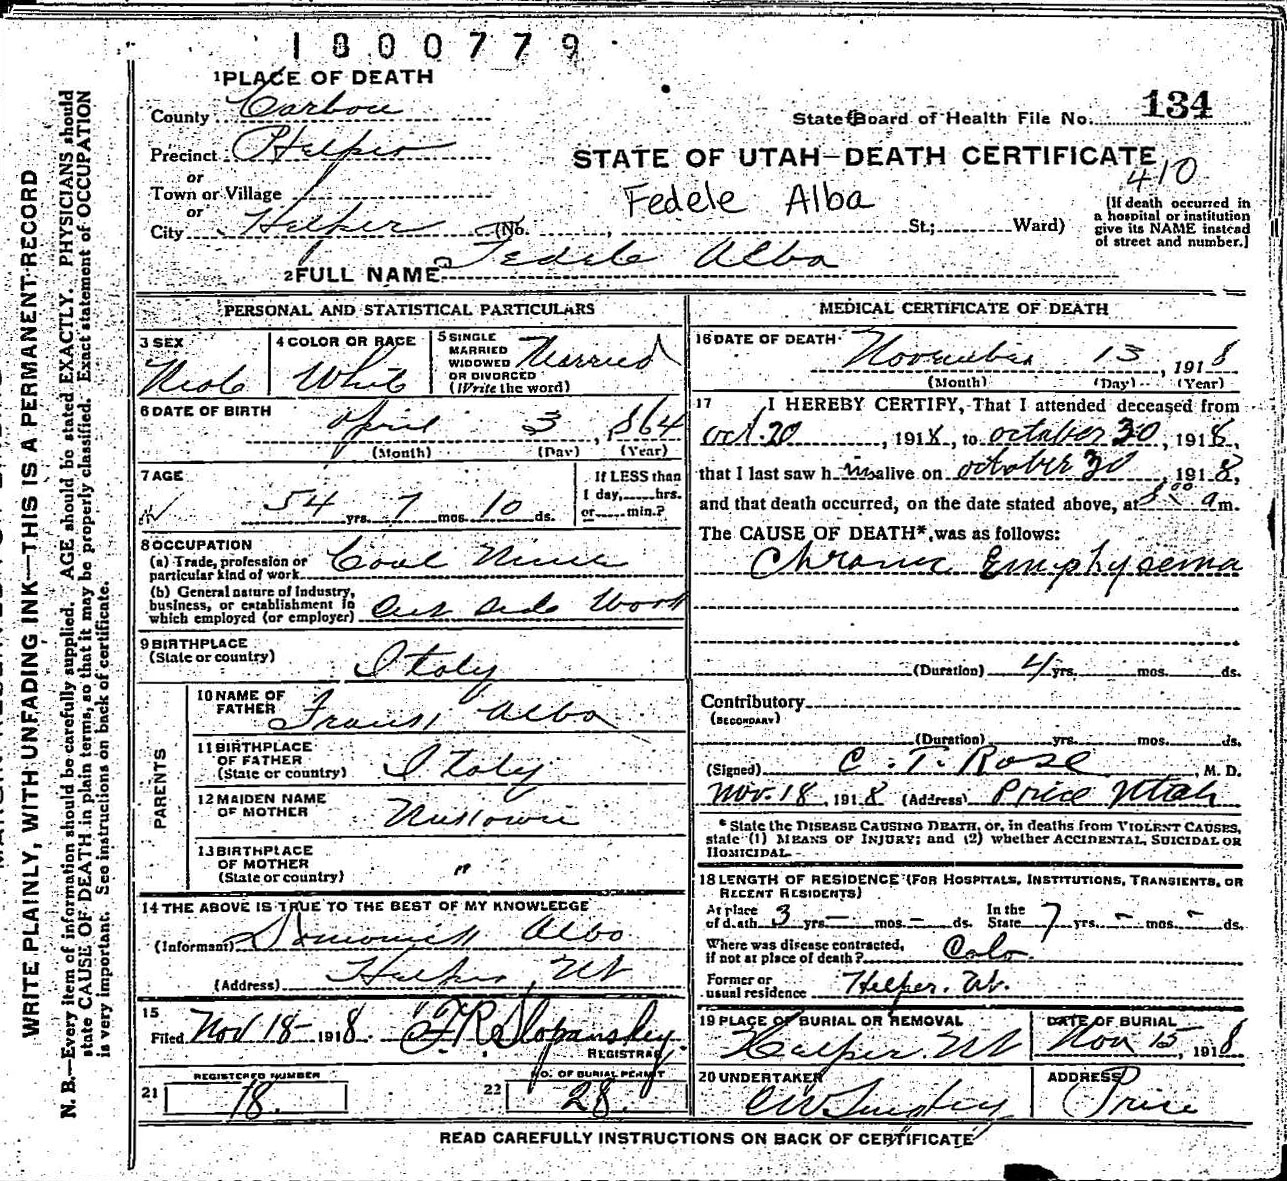 1800779
1 PLACE OF DEATH
County Carbon
Precinct Helper
or
Town or Village
or
City Helper (No. , St.; Ward)
State Board of Health File No. 134
STATE OF UTAH—DEATH CERTIFICATE
410
Fedele Alba
(If death occurred in
a hospital or institution
give its NAME instead
of street and number.)
2 FULL NAME Fedele Alba
PERSONAL AND STATISTICAL PARTICULARS
3 SEX
Male
4 COLOR OR RACE
White
5 SINGLE
MARRIED
WIDOWED
OR DIVORCED
(Write the word)
Married
6 DATE OF BIRTH
April 3, 1864
(Month) (Day) (Year)
7 AGE
54 yrs. 7 mos. 10 ds.
If LESS than
1 day, hrs.
or min.?
8 OCCUPATION
(a) Trade, profession or
particular kind of work Coal Miner
(b) General nature of industry,
business, or establishment in
which employed (or employer) Out side Work
9 BIRTHPLACE
(State or country) Italy
PARENTS
10 NAME OF
FATHER Alba
11 BIRTHPLACE
OF FATHER
(State or country) Italy
12 MAIDEN NAME
OF MOTHER
13 BIRTHPLACE
OF MOTHER
(State or country) "
14 THE ABOVE IS TRUE TO THE BEST OF MY KNOWLEDGE
(Informant) Domonick Albo
(Address) Helper, Ut
15
Filed Nov 18- 1918. F.R. Slopansky.
REGISTRAR
21 REGISTERED NUMBER
18.
22 NO. OF BURIAL PERMIT
28.
MEDICAL CERTIFICATE OF DEATH
16 DATE OF DEATH
November 13, 1918
(Month) (Day) (Year)
17 I HEREBY CERTIFY, That I attended deceased from
Oct. 20, 1918, to October 30, 1918,
that I last saw him alive on October 30 1918,
and that death occurred, on the date stated above, at 8:00 a m.
The CAUSE OF DEATH* was as follows:
Chronic Emphysema
(Duration) 4 yrs. mos. ds.
Contributory
(SECONDARY)
(Duration) yrs. mos. ds.
(Signed) C. T. Rose, M. D.
Nov. 18, 1918 (Address) Price Utah
* State the DISEASE CAUSING DEATH, or, in deaths from VIOLENT CAUSES,
state (1) MEANS OF INJURY; and (2) whether ACCIDENTAL, SUICIDAL OR
HOMICIDAL.
18 LENGTH OF RESIDENCE (FOR HOSPITALS, INSTITUTIONS, TRANSIENTS, OR
RECENT RESIDENTS)
At place
of death 3 yrs. – mos. – ds.
In the
State 7 yrs. – mos. – ds.
Where was disease contracted,
if not at place of death? Colo.
Former or
usual residence Helper. Ut.
19 PLACE OF BURIAL OR REMOVAL
Helper Ut
DATE OF BURIAL
Nov 15, 1918
20 UNDERTAKER
ADDRESS
Price
READ CAREFULLY INSTRUCTIONS ON BACK OF CERTIFICATE
WRITE PLAINLY, WITH UNFADING INK—THIS IS A PERMANENT RECORD
N. B.—Every item of information should be carefully supplied. AGE should be stated EXACTLY. PHYSICIANS should
state CAUSE OF DEATH in plain terms, so that it may be properly classified. Exact statement of OCCUPATION
is very important. See instructions on back of certificate.